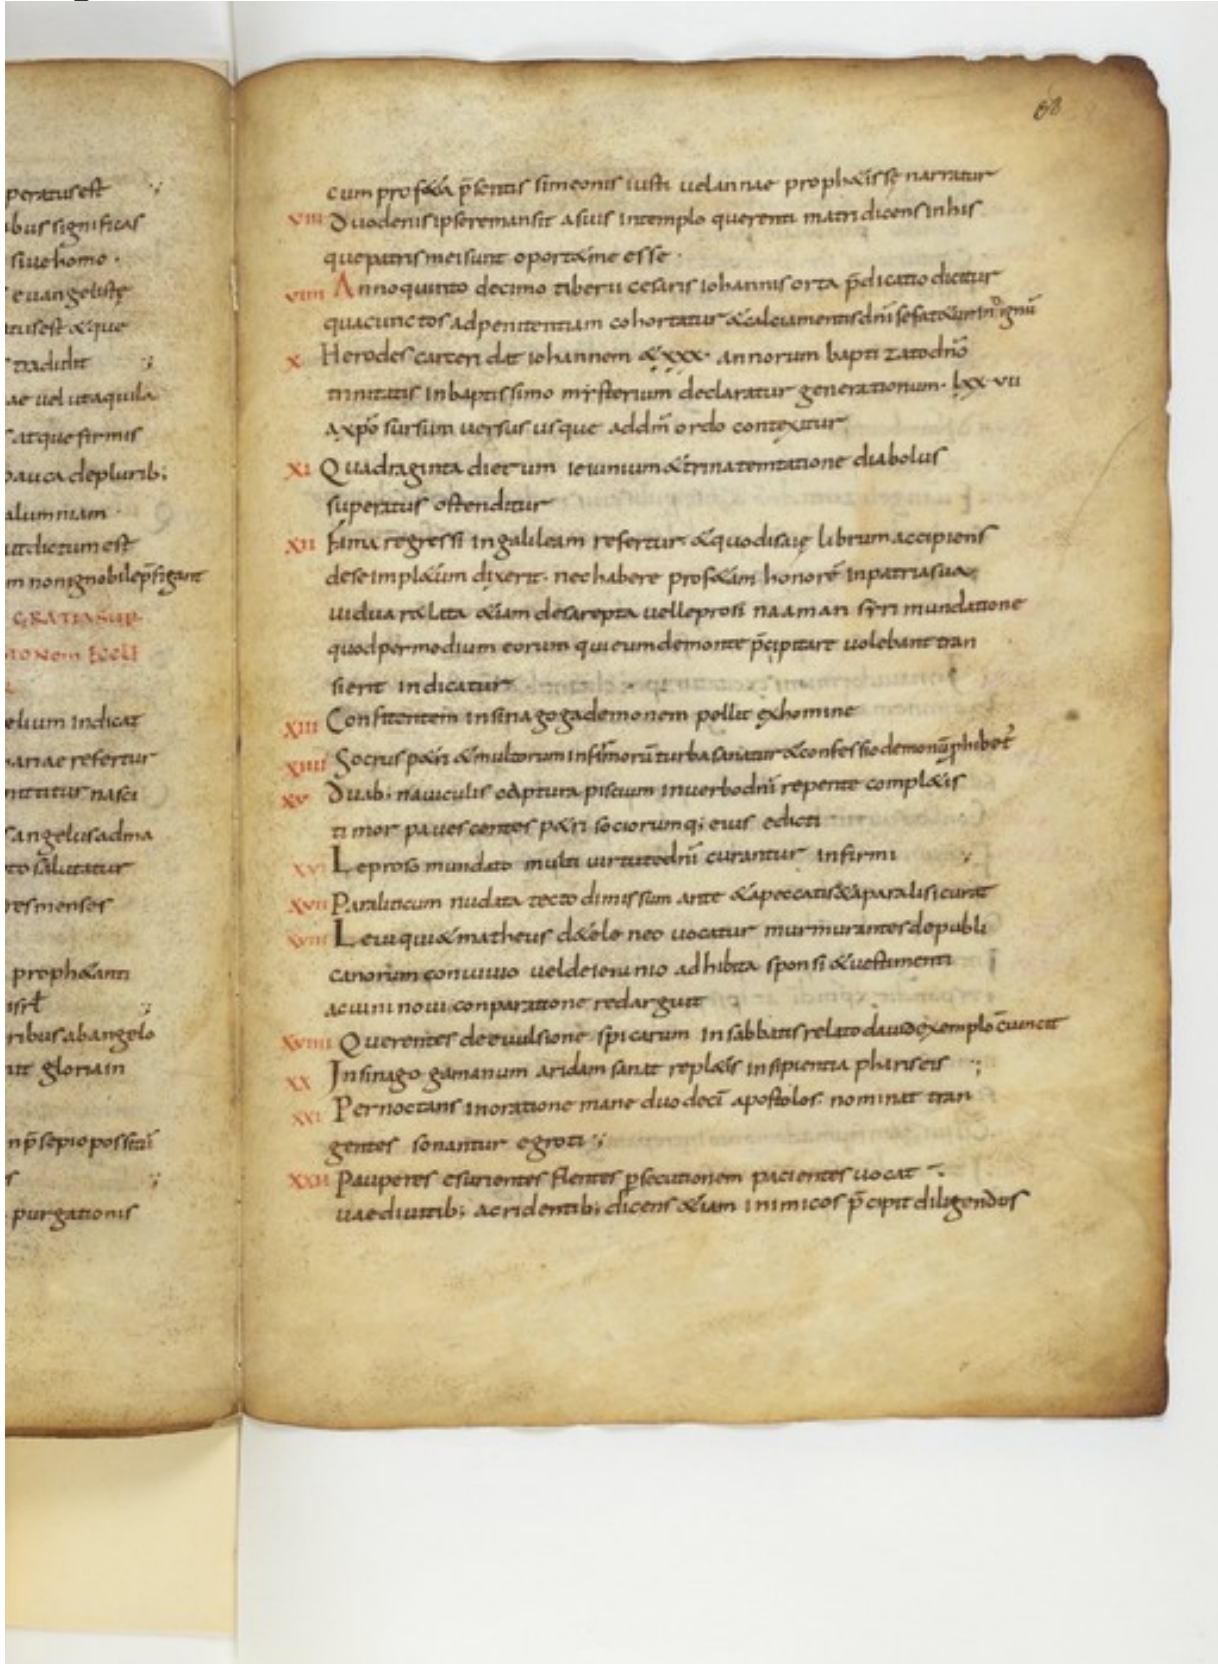 peratus est
bus significas
siue homo ·
euangelistę
atus est & que
tradidit
ae uel ut aquila
s at que firmis
pauca de plurib;
alumniam ·
ut dictum est
m non ignobile p̄figant
GRATIA SUP
elium indicat
ariae refertur
mittitur nasci
s angelus ad ma
to salutatur
res menses
proph&anti
isrł
oribus ab angelo
it gloria in
n p̄sepio possitū
purgationis
68
cum prof&a p̄sentis simeonis iusti uel annae proph&isse narratur
VIII Duodenis ipse remansit a suis in templo querenti matri dicens in his
que patris mei sunt oport& me esse ·
VIIII Anno quinto decimo tiberii cesaris iohannis orta p̄dicatio dicitur
qua cunctos ad penitentiam cohortatur & calciamentis dn̄i se fat&ur in
X Herodes carceri dat iohannem & xxx · annorum baptizato dn̄o
trinitatis in baptissimo mysterium declaratur generationum · lxx · vii
a xp̄o sursum uersus usque ad dm̄ ordo contexitur
XI Quadraginta dierum ieiunium & trina temtatione diabolus
superatus ostenditur
XII Fama regressi in galileam refertur & quod isaię librum accipiens
de se impl&um dixerit · nec habere prof&am honorē in patria sua
uidua r&lata &iam de sarepta uel leprosi naaman syri mundatione
quod per modium eorum qui eum de monte p̄cipitare uolebant tran
sierit indicatur
XIII Confitentem in sinagoga demonem pellit ex homine
XIIII Socrus p&ri & multorum infirmorū turba sanatur & confessio demonū phibet᷑
XV Duab; nauiculis captura piscium in uerbo dn̄i repente compl&is
timor pauescentes p&ri sociorumq; eius edicti
XVI Leproso mundato multi uirtute dn̄i curantur infirmi
XVII Paraliticum nudata tecto dimissum ante & a peccatis & a paralisi curat
XVIII Leui qui & matheus d&eleneo uocatur murmurantes de publi
canorum conuiuio uel de ieiunio adhibita sponsi & uestimenti
ac uini noui conparatione redarguit
XVIIII Querentes de euulsione spicarum in sabbatis relato dauid exemplo cuncit
XX In sinagoga manum aridam sanat repl&is insipientia phariseis
XXI Pernoctans in oratione mane duodecī apostolos · nominat tran
gentes sonantur egroti ·;
XXII Pauperes esurientes flentes psecutionem pacientes uocat
uae diuitib; ac ridentib; dicens &iam inimicos p̄cipit diligendos